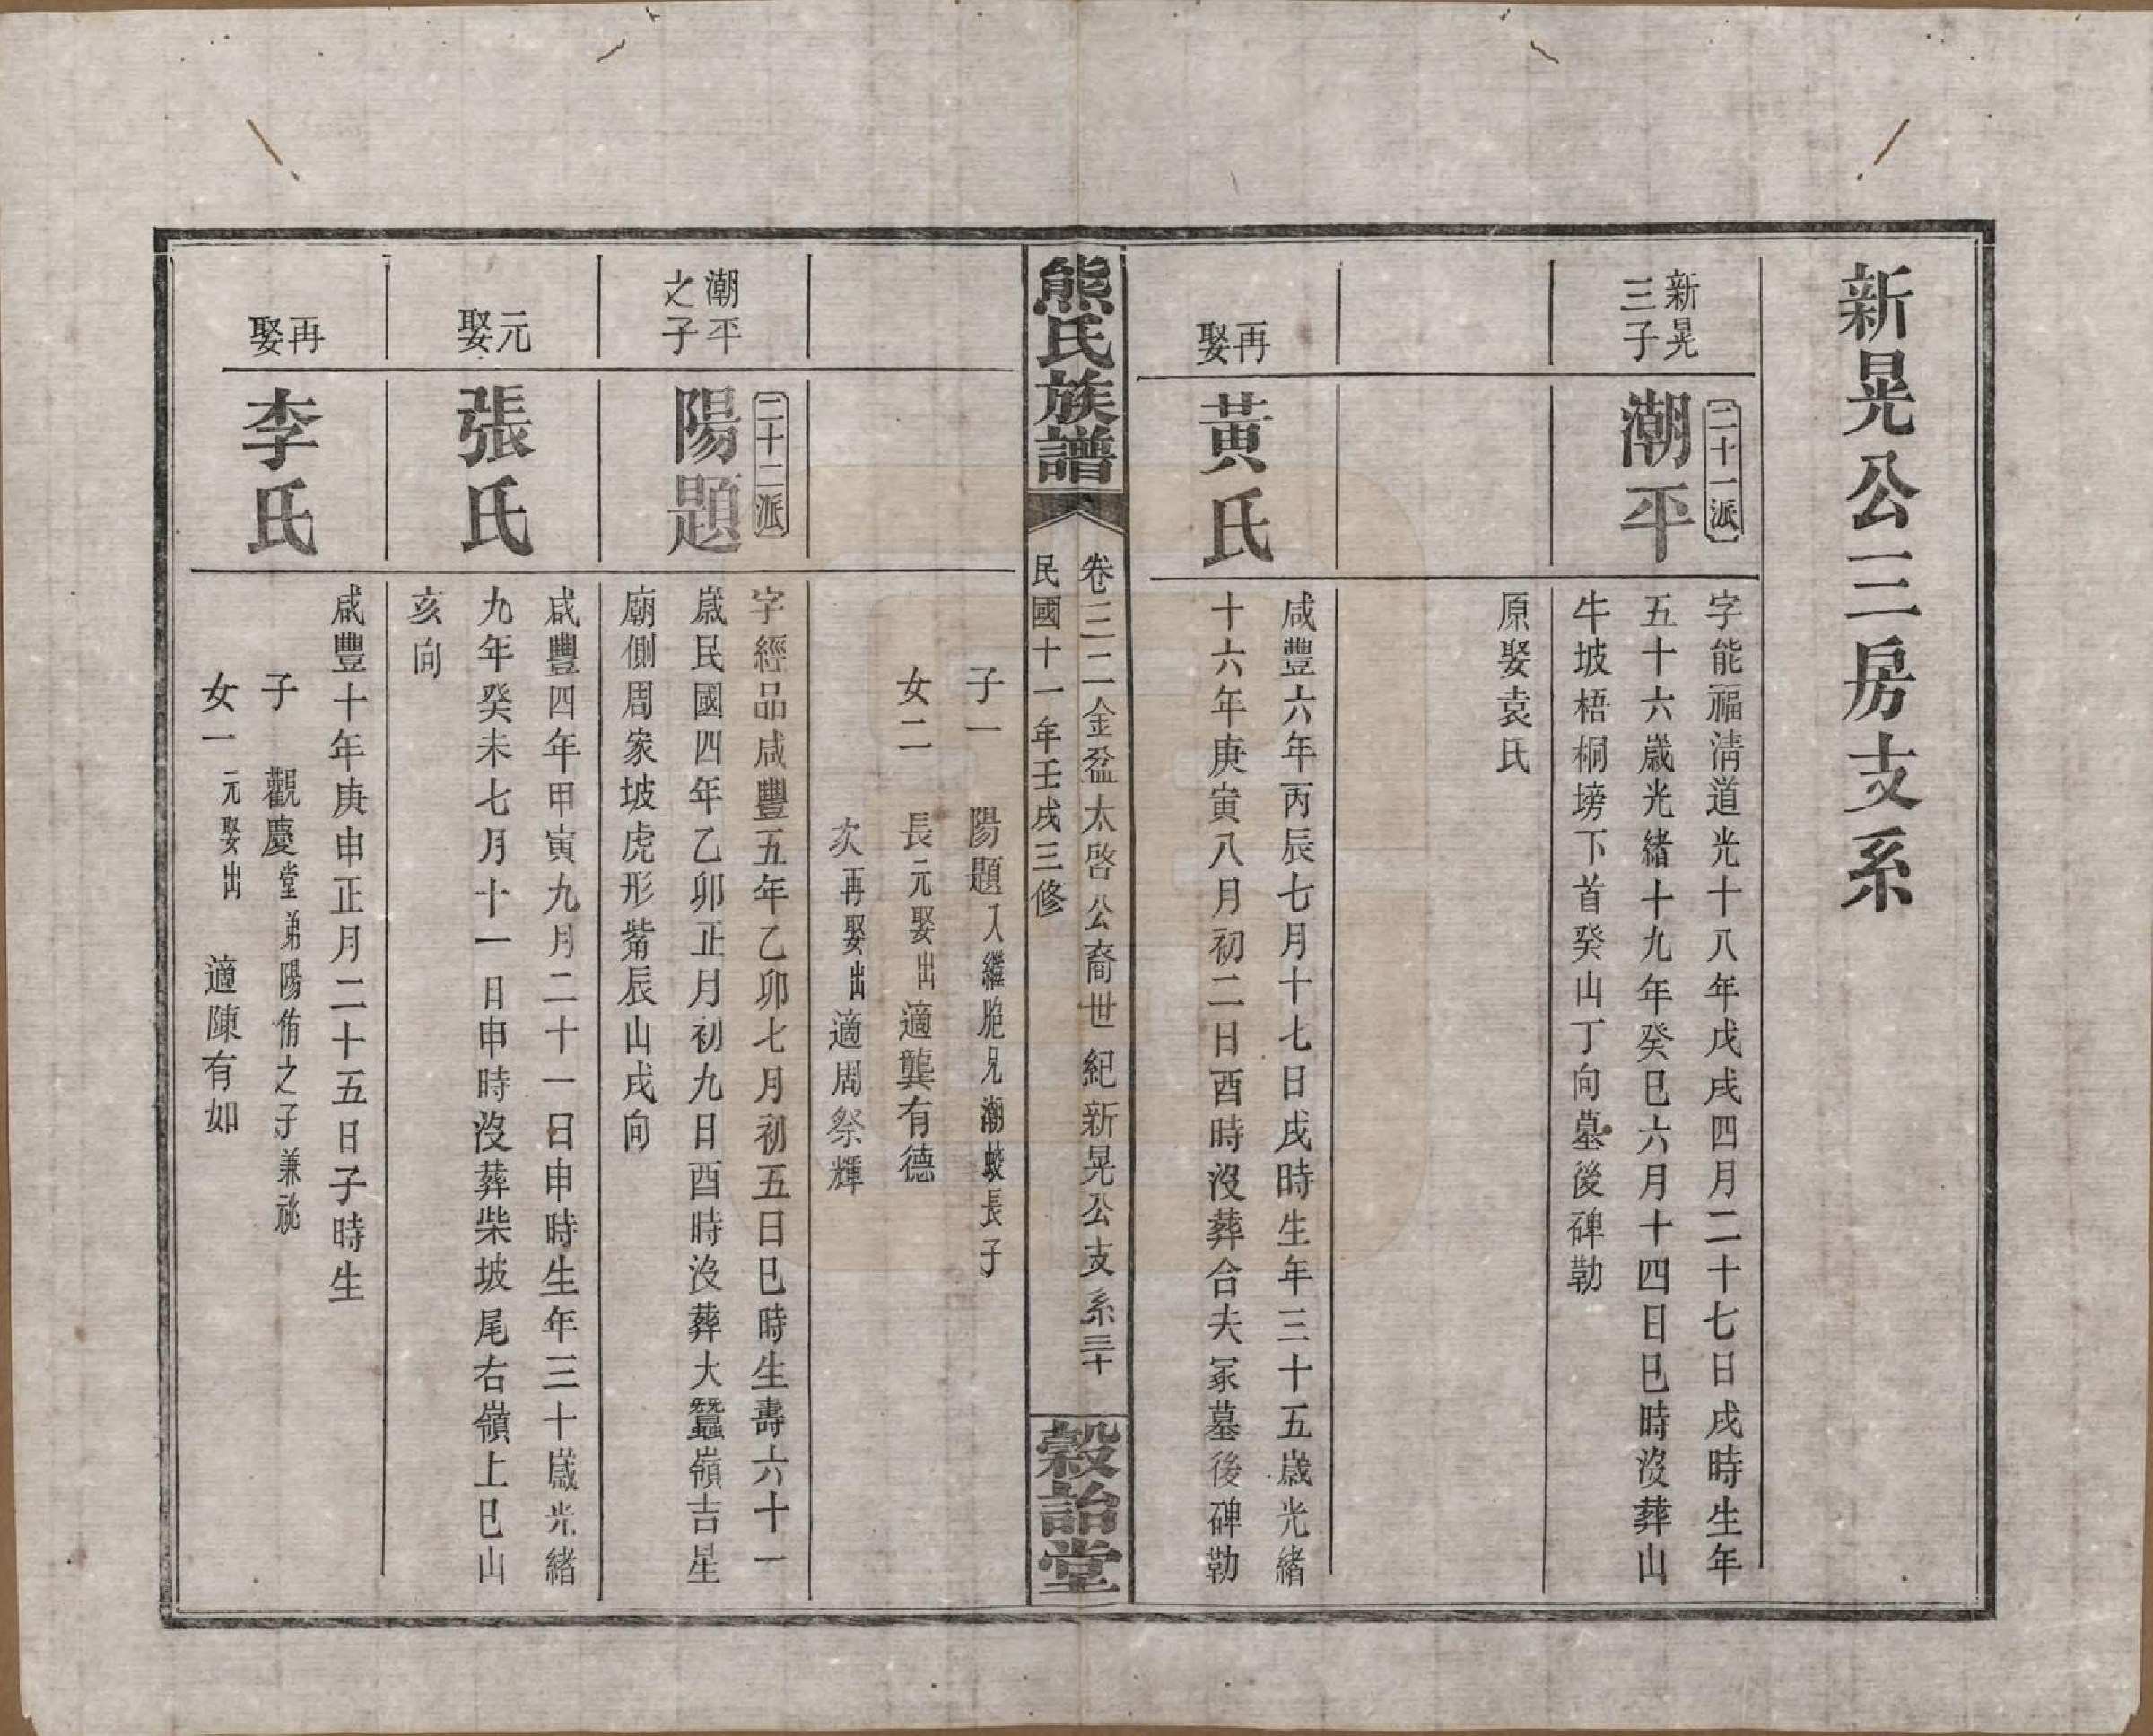 新晃公三房支系
新晃
三子
二十一派
潮平
字能福淸道光十八年戊戌四月二十七日戌時生年
五十六歲光緒十九年癸巳六月十四日巳時沒葬山
牛坡梧桐塝下首癸山丁向墓後碑勒
原娶袁氏
再娶
黃氏
咸豐六年丙辰七月十七日戌時生年三十五歲光緒
十六年庚寅八月初二日酉時沒葬合夫冢墓後碑勒
熊氏族譜
卷三二金盆太啓公裔世紀新晃公支系三十
民國十一年壬戌三修
穀詒堂
子一 陽題入繼胞兄潮蛟長子
女二 長元娶出適龔有德
次再娶出適周祭輝
潮平
之子
二十二派
陽題
字經品咸豐五年乙卯七月初五日巳時生壽六十一
歲民國四年乙卯正月初九日酉時沒葬大蠶嶺吉星
廟側周家坡虎形觜辰山戌向
元娶
張氏
咸豐四年甲寅九月二十一日申時生年三十歲光緒
九年癸未七月十一日申時沒葬柴坡尾右嶺上巳山
亥向
再娶
李氏
咸豐十年庚申正月二十五日子時生
子 觀慶堂弟陽侑之子兼祧
女一元娶出 適陳有如